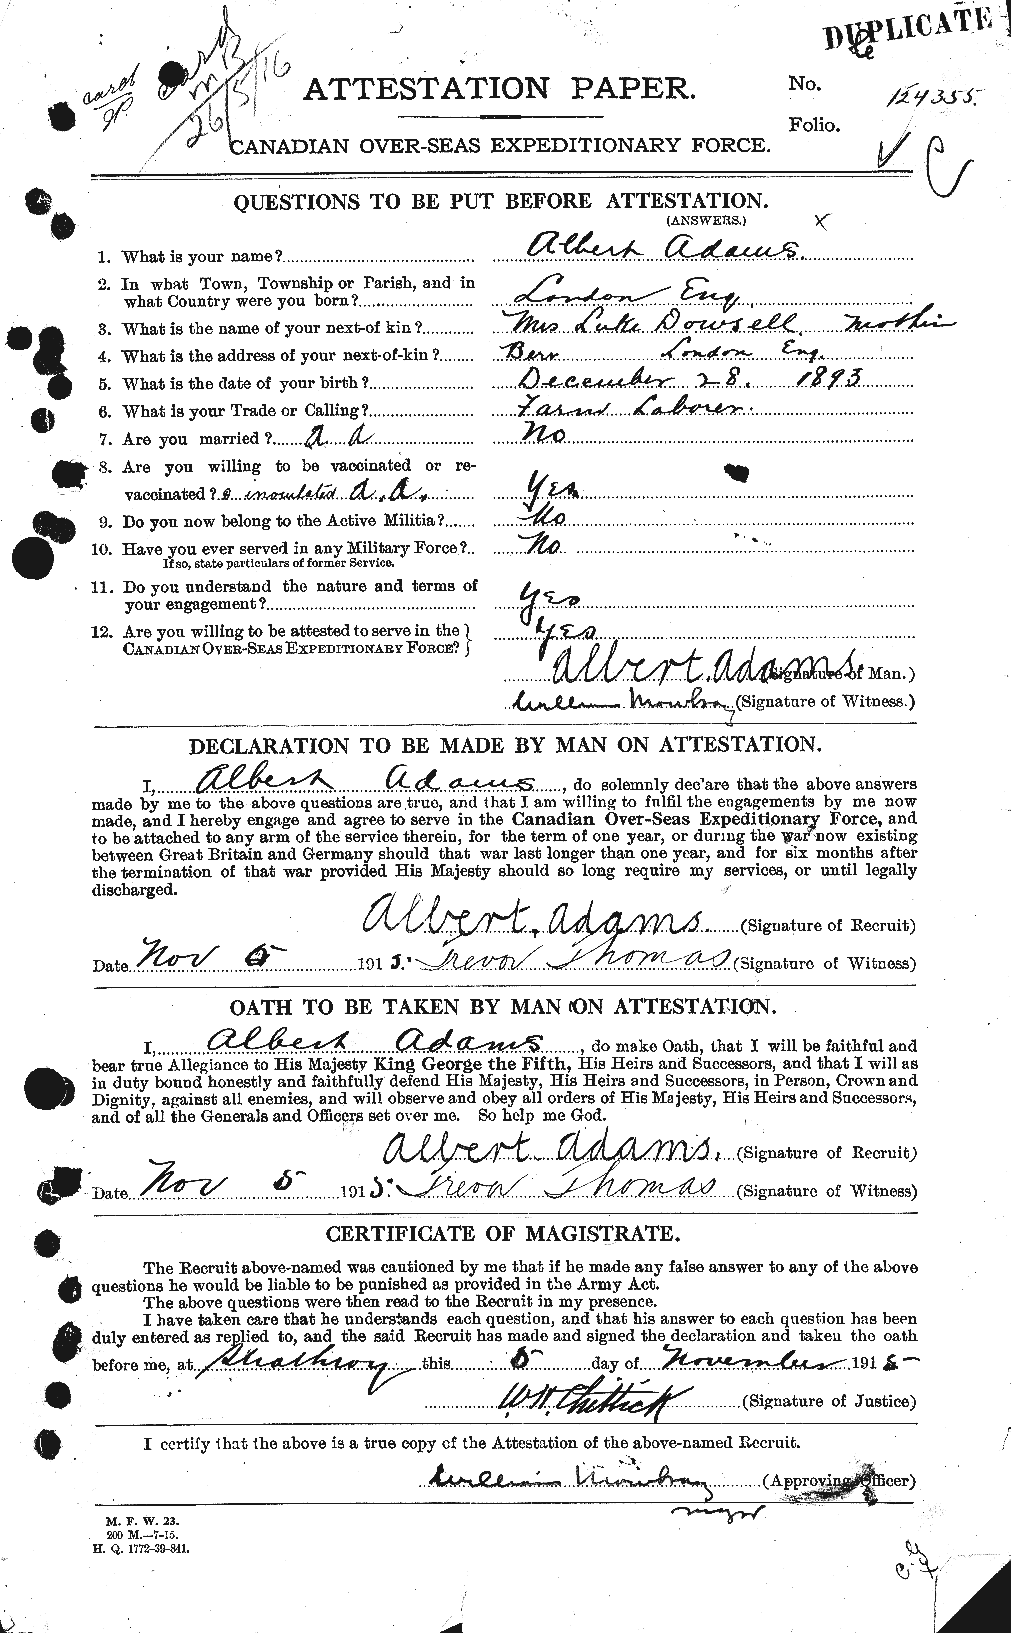 DUPLICATE
card
26/5/16
ATTESTATION PAPER.
No. 124355.
Folio.
CANADIAN OVER-SEAS EXPEDITIONARY FORCE.
QUESTIONS TO BE PUT BEFORE ATTESTATION.
(ANSWERS.)
1. What is your name? Albert Adams.
2. In what Town, Township or Parish, and in
what Country were you born? London Eng.
3. What is the name of your next-of kin? Mrs Luke Dowsell. Mother
4. What is the address of your next-of-kin? London Eng.
5. What is the date of your birth? December 28. 1893
6. What is your Trade or Calling? Farm Laborer.
7. Are you married? A A No
8. Are you willing to be vaccinated or re-
vaccinated? & inoculated A.A. Yes
9. Do you now belong to the Active Militia? No
10. Have you ever served in any Military Force? No
If so, state particulars of former Service.
11. Do you understand the nature and terms of
your engagement? Yes
12. Are you willing to be attested to serve in the Yes
CANADIAN OVER-SEAS EXPEDITIONARY FORCE?
Albert. Adams. (Signature of Man.)
William Mowbray (Signature of Witness.)
DECLARATION TO BE MADE BY MAN ON ATTESTATION.
I, Albert Adams, do solemnly dec'are that the above answers
made by me to the above questions are true, and that I am willing to fulfil the engagements by me now
made, and I hereby engage and agree to serve in the Canadian Over-Seas Expeditionary Force, and
to be attached to any arm of the service therein, for the term of one year, or during the war now existing
between Great Britain and Germany should that war last longer than one year, and for six months after
the termination of that war provided His Majesty should so long require my services, or until legally
discharged.
Albert. Adams. (Signature of Recruit)
Date Nov 5 1915. Trevor Thomas (Signature of Witness)
OATH TO BE TAKEN BY MAN ON ATTESTATION.
I, Albert Adams, do make Oath, that I will be faithful and
bear true Allegiance to His Majesty King George the Fifth, His Heirs and Successors, and that I will as
in duty bound honestly and faithfully defend His Majesty, His Heirs and Successors, in Person, Crown and
Dignity, against all enemies, and will observe and obey all orders of His Majesty, His Heirs and Successors,
and of all the Generals and Officers set over me. So help me God.
Albert Adams. (Signature of Recruit)
Date Nov 5 1915. Trevor Thomas (Signature of Witness)
CERTIFICATE OF MAGISTRATE.
The Recruit above-named was cautioned by me that if he made any false answer to any of the above
questions he would be liable to be punished as provided in the Army Act.
The above questions were then read to the Recruit in my presence.
I have taken care that he understands each question, and that his answer to each question has been
duly entered as replied to, and the said Recruit has made and signed the declaration and taken the oath
before me, at Strathroy this 5 day of November 1915
W.H. Chittick (Signature of Justice)
I certify that the above is a true copy of the Attestation of the above-named Recruit.
William Mowbray (Approving Officer)
major
M. F. W. 23.
200 M.—7-15.
H. Q. 1772-39-841.